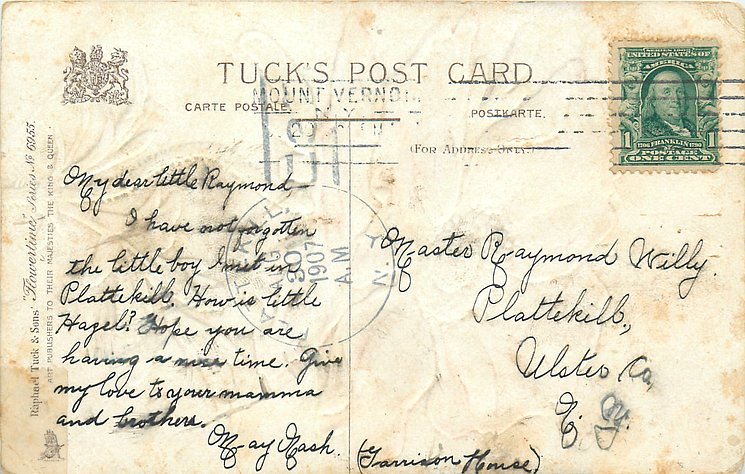 TUCK'S POST CARD
CARTE POSTALE.
POSTKARTE.
(FOR ADDRESS ONLY.)
MOUNT VERNO
N.Y.
SERIES 1902
UNITED STATES OF
AMERICA
1706 FRANKLIN 1790
1 POSTAGE
ONE CENT
Raphael Tuck & Sons' "Flowertime" Series No 6955.
ART PUBLISHERS TO THEIR MAJESTIES THE KING & QUEEN
PLATTEKILL
AUG
30
1907
A.M
N.Y.
My dear little Raymond—
I have not forgotten
the little boy I met in
Plattekill. How is little
Hazel? Hope you are
having a nice time. Give
my love to your mamma
and brothers.
May Nash.
Master Raymond Willy.
Plattekill,
Ulster Co,
N.Y.
(Garrison House)